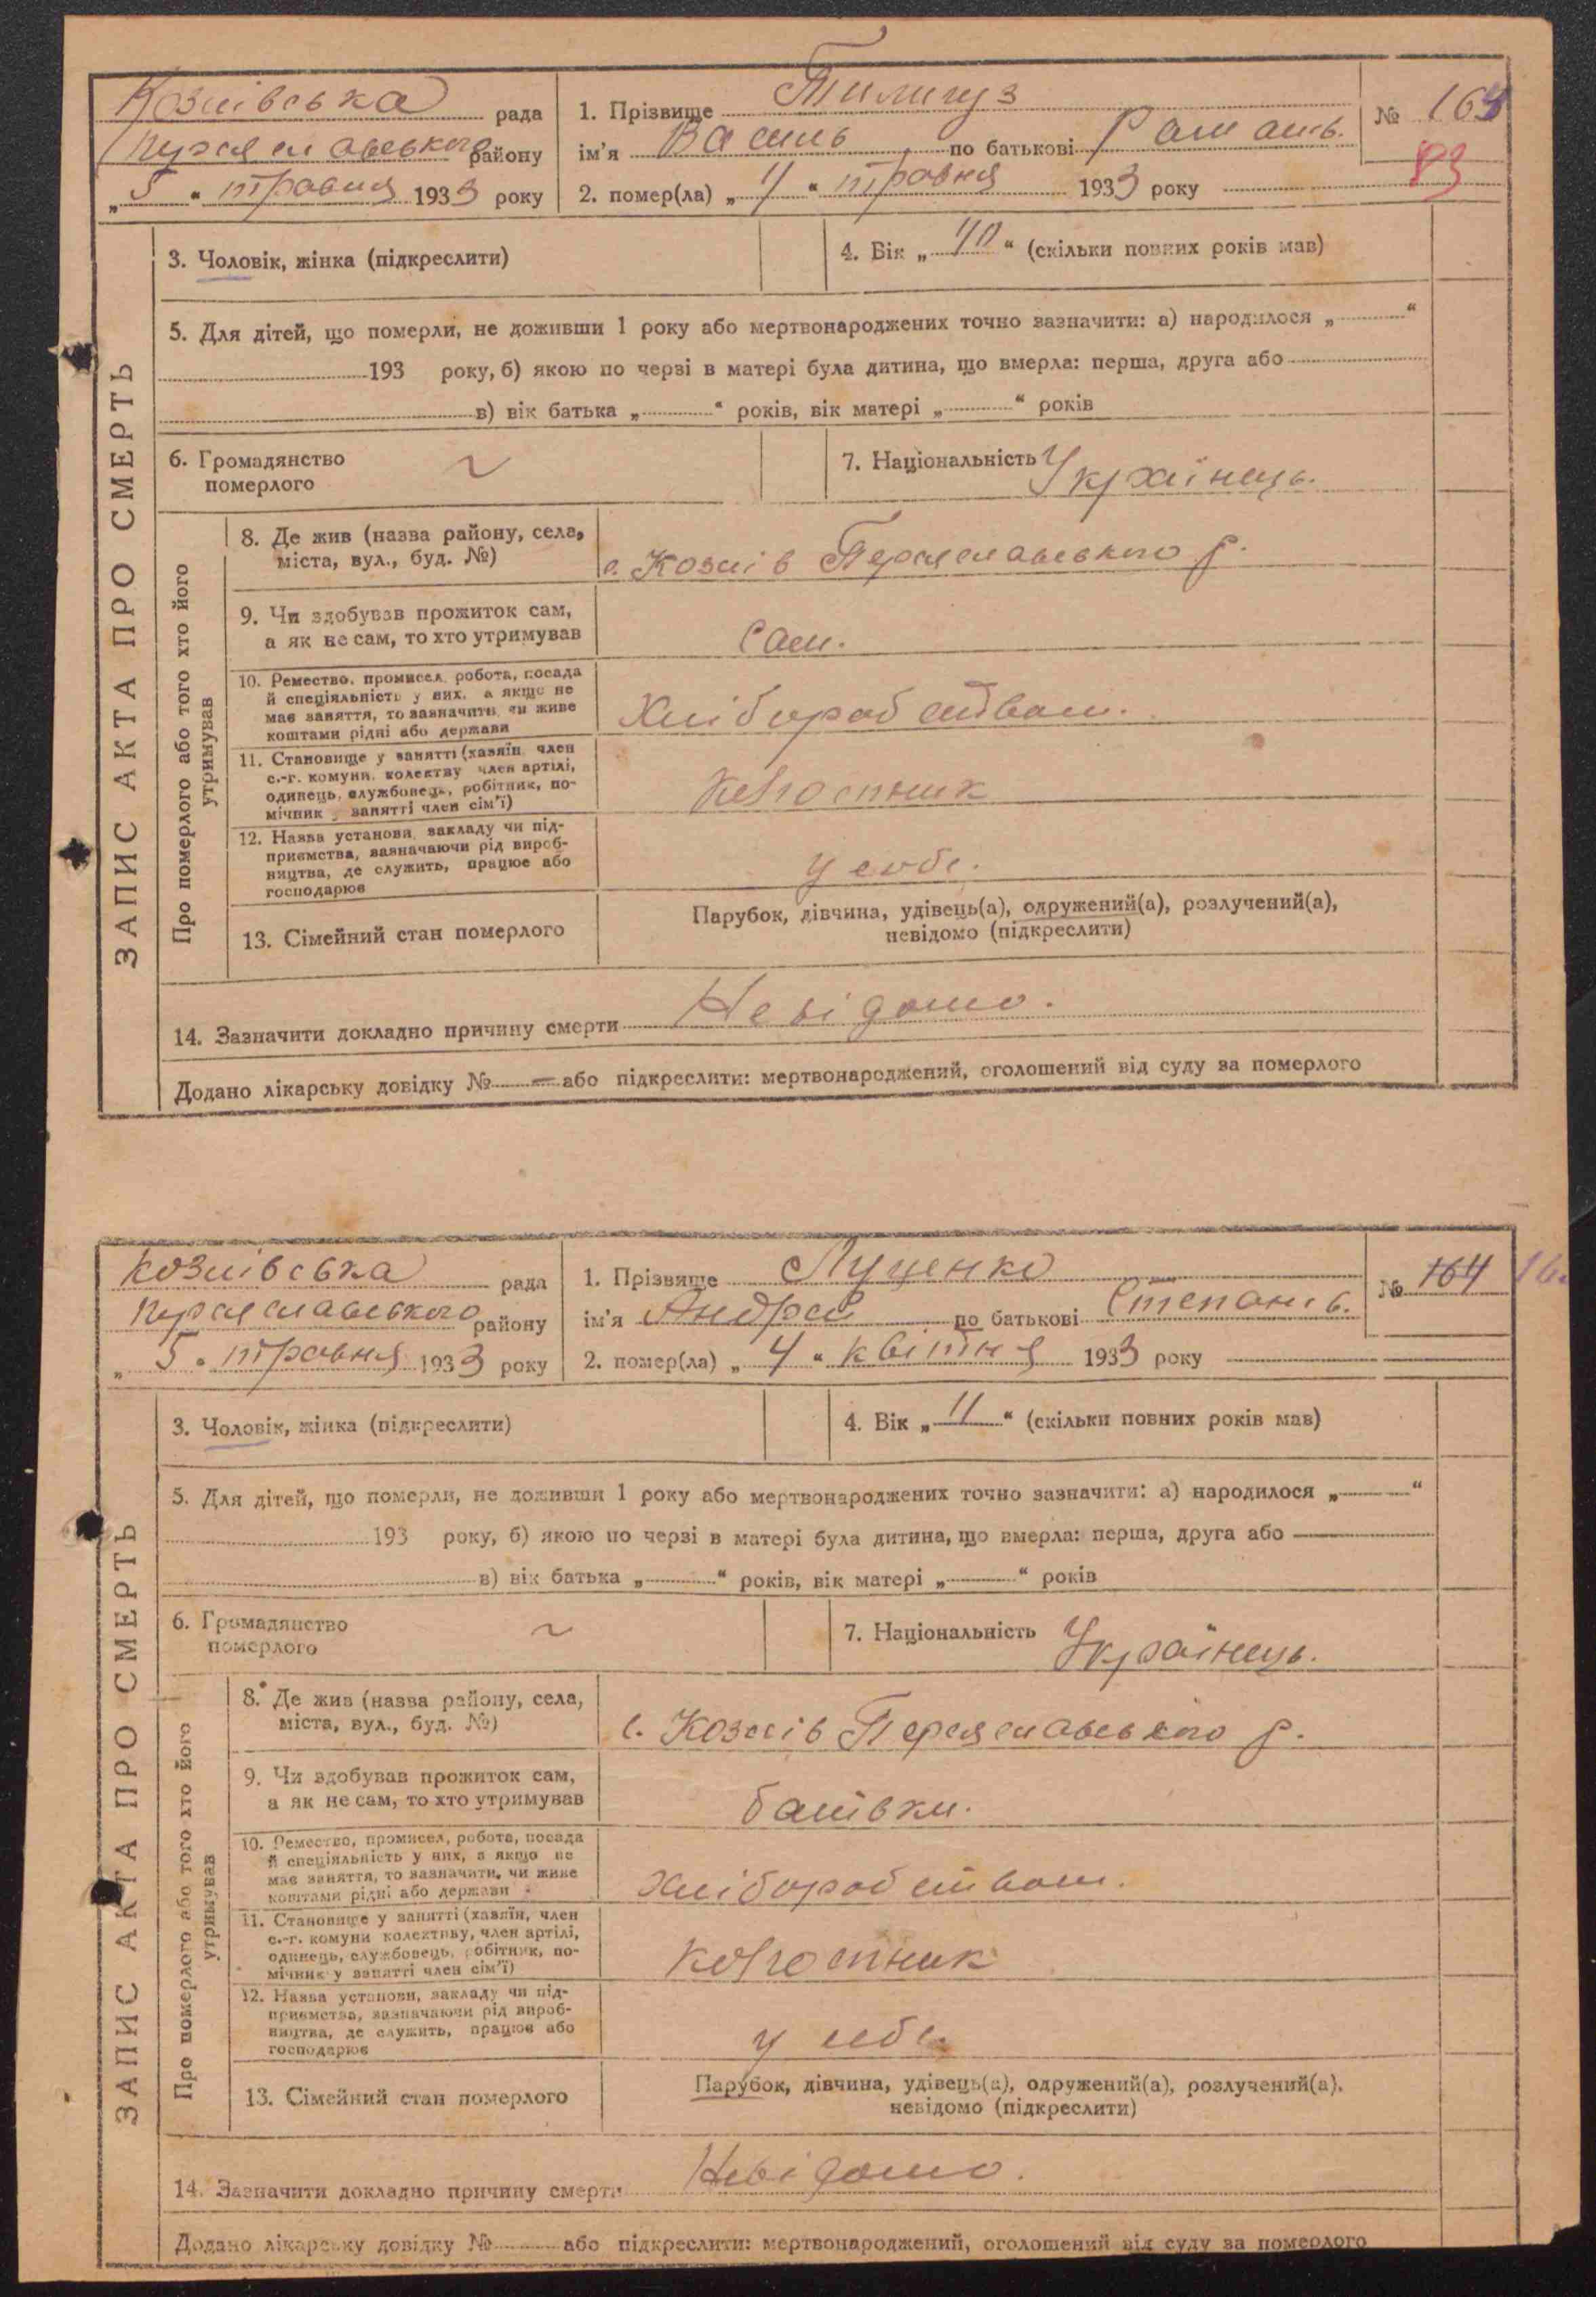 ЗАПИС АКТА ПРО СМЕРТЬ
Козлівська рада
Переяславського району
„ 5 “ травня 1933 року
1. Прізвище
ім’я Василь по батькові
2. помер(ла) „ “ травня 1933 року
№ 163
83
3. Чоловік, жінка (підкреслити)
4. Вік „ “ (скільки повних років мав)
5. Для дітей, що померли, не доживши 1 року або мертвонароджених точно зазначити: а) народилося „ “
193 року, б) якою по черзі в матері була дитина, що вмерла: перша, друга або
в) вік батька „ “ років, вік матері „ “ років
6. Громадянство
померлого
7. Національність Українець.
Про померлого або того хто його
утримував
8. Де жив (назва району, села,
міста, вул., буд. №)
с. Козлів Переяславського р.
9. Чи здобував прожиток сам,
а як не сам, то хто утримував
Сам.
10. Ремество, промисел, робота, посада
й спеціяльність у них, а якщо не
має заняття, то зазначити, чи живе
коштами рідні або держави
Хліборобством.
11. Становище у занятті (хазяїн, член
с.-г. комуни, колективу, член артілі,
одинець, службовець, робітник, по-
мічник у занятті член сім’ї)
12. Назва установи, закладу чи під-
приємства, зазначаючи рід вироб-
ництва, де служить, працює або
господарює
у себе.
13. Сімейний стан померлого
Парубок, дівчина, удівець(а), одружений(а), розлучений(а),
невідомо (підкреслити)
14. Зазначити докладно причину смерти Невідомо.
Додано лікарську довідку № — або підкреслити: мертвонароджений, оголошений від суду за померлого
ЗАПИС АКТА ПРО СМЕРТЬ
Козлівська рада
Переяславського району
„ 5 “ травня 1933 року
1. Прізвище Луценко
ім’я Андрей по батькові Степанов.
2. помер(ла) „ 4 “ квітня 1933 року
№ 164
3. Чоловік, жінка (підкреслити)
4. Вік „ 11 “ (скільки повних років мав)
5. Для дітей, що померли, не доживши 1 року або мертвонароджених точно зазначити: а) народилося „ “
193 року, б) якою по черзі в матері була дитина, що вмерла: перша, друга або
в) вік батька „ “ років, вік матері „ “ років
6. Громадянство
померлого
7. Національність Українець.
Про померлого або того хто його
утримував
8. Де жив (назва району, села,
міста, вул., буд. №)
с. Козлів Переяславського р.
9. Чи здобував прожиток сам,
а як не сам, то хто утримував
батьки.
10. Ремество, промисел, робота, посада
й спеціяльність у них, а якщо не
має заняття, то зазначити, чи живе
коштами рідні або держави
Хліборобством.
11. Становище у занятті (хазяїн, член
с.-г. комуни колективу, член артілі,
одинець, службовець, робітник, по-
мічник у занятті член сім’ї)
12. Назва установи, закладу чи під-
приємства, зазначаючи рід вироб-
ництва, де служить, працює або
господарює
у себе.
13. Сімейний стан померлого
Парубок, дівчина, удівець(а), одружений(а), розлучений(а),
невідомо (підкреслити)
14. Зазначити докладно причину смерти Невідомо.
Додано лікарську довідку № або підкреслити: мертвонароджений, оголошений від суду за померлого